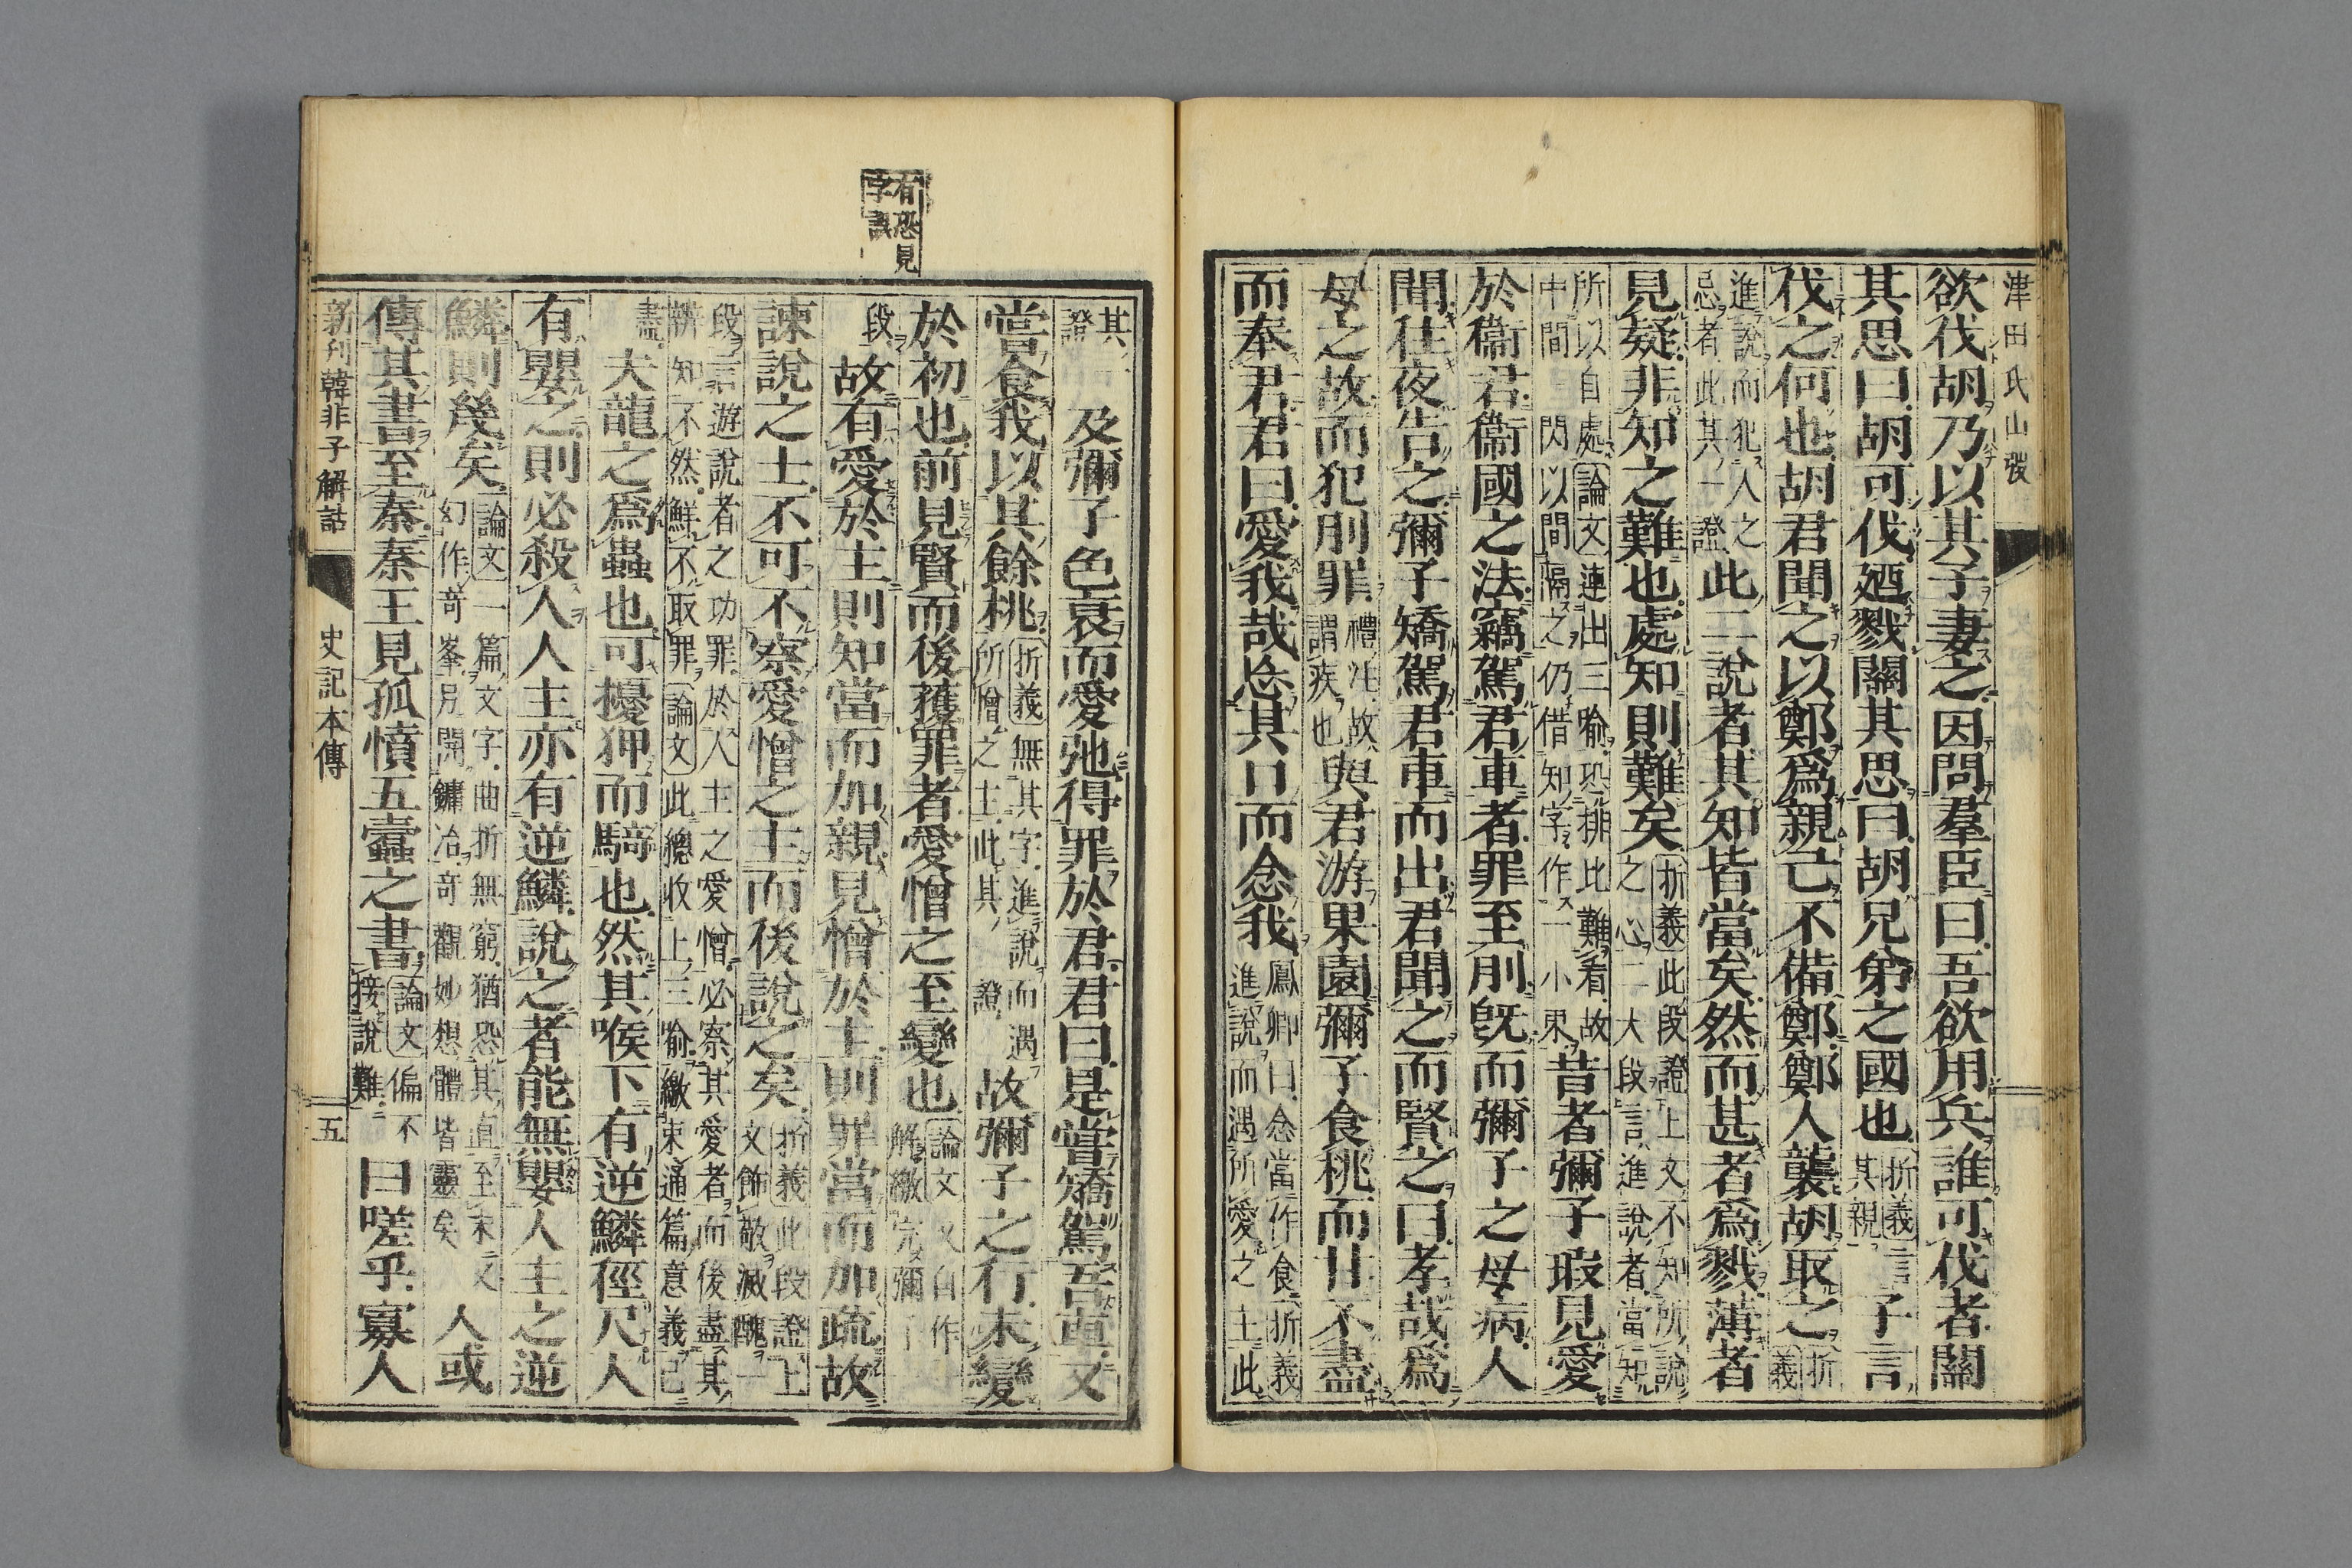 津田氏山
欲伐胡乃以其子妻之因問羣臣曰吾欲用兵誰可伐者關
其思曰胡可伐廼戮關其思曰胡兄弟之國也折義言其親子言
伐之何也胡君聞之以鄭爲親己不備鄭鄭人襲胡取之折義
進說而犯人之忌者此其一證此二說者其知皆當矣然而甚者爲戮薄者
見疑非知之難也處知則難矣折義此段證上文不知所說之心二大段言進說者當知
所以自處論文連出三喻恐排比難看故中間閃以間隔之仍借知字作一小束昔者彌子瑕見愛
於衞君衞國之法竊駕君車者罪至刖既而彌子之母病人
聞往夜告之彌子矯駕君車而出君聞之而賢之曰孝哉爲
母之故而犯刖罪禮注故謂疾也與君游果園彌子食桃而甘不盡
而奉君君曰愛我哉忘其口而念我鳳卿曰念當作食折義進說而遇所愛之士此
有恐見字誤
其證及彌子色衰而愛弛得罪於君君曰是嘗矯駕吾車又
嘗食我以其餘桃折義無其字進說而遇所憎之士此其證故彌子之行未變
於初也前見賢而後獲罪者愛憎之至變也論文又自作解繳完彌子
段故有愛於主則知當而加親見憎於主則罪當而加疏故
諫說之士不可不察愛憎之主而後說之矣折義此段證上文飾敬滅醜一
段言游說者之功罪於人主之愛憎必察其愛者而後盡其辨知不然鮮不取罪論文此總收上三喻繳束通篇意義已
盡夫龍之爲蟲也可擾狎而騎也然其喉下有逆鱗徑尺人
有嬰之則必殺人人主亦有逆鱗說之者能無嬰人主之逆
鱗則幾矣論文一篇文字曲折無窮猶恐其直至末又幻作奇峯另開鑪冶奇觀妙想體皆靈矣人或
傳其書至秦秦王見孤憤五蠹之書論文偏不接說難曰嗟乎寡人
新刋韓非子解詁
史記本傳
五